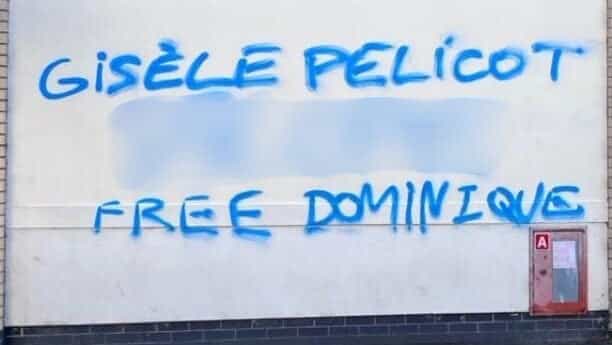 GISÈLE PELICOT
FREE DOMINIQUE
A